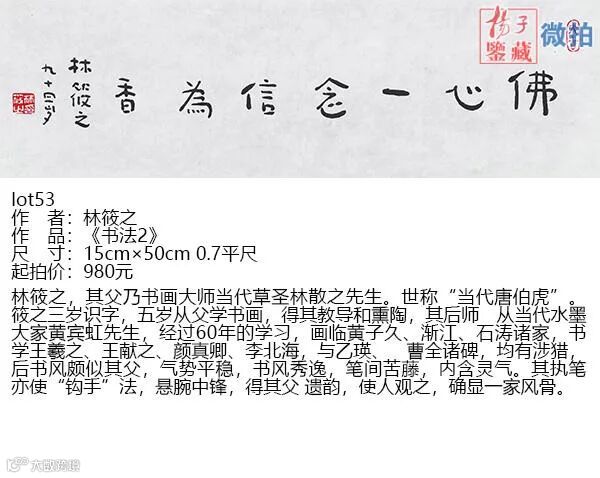 揚子
鑒藏
微拍
佛心一念信為香
林筱之
九十四岁
lot53
作 者：林筱之
作 品：《书法2》
尺 寸：15cm×50cm 0.7平尺
起拍价：980元
林筱之，其父乃书画大师当代草圣林散之先生。世称“当代唐伯虎”。
筱之三岁识字，五岁从父学书画，得其教导和熏陶，其后师 从当代水墨
大家黄宾虹先生，经过60年的学习，画临黄子久、渐江、石涛诸家，书
学王羲之、王献之、颜真卿、李北海，与乙瑛、 曹全诸碑，均有涉猎，
后书风颇似其父，气势平稳，书风秀逸，笔间苦藤，内含灵气。其执笔
亦使“钩手”法，悬腕中锋，得其父 遗韵，使人观之，确显一家风骨。
大数跨境